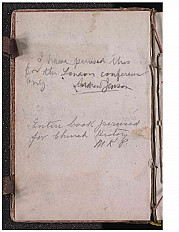 I have perused this
for the London conference
only.
Andrew Jenson
Entire book perused
for Church History
M.K.P.